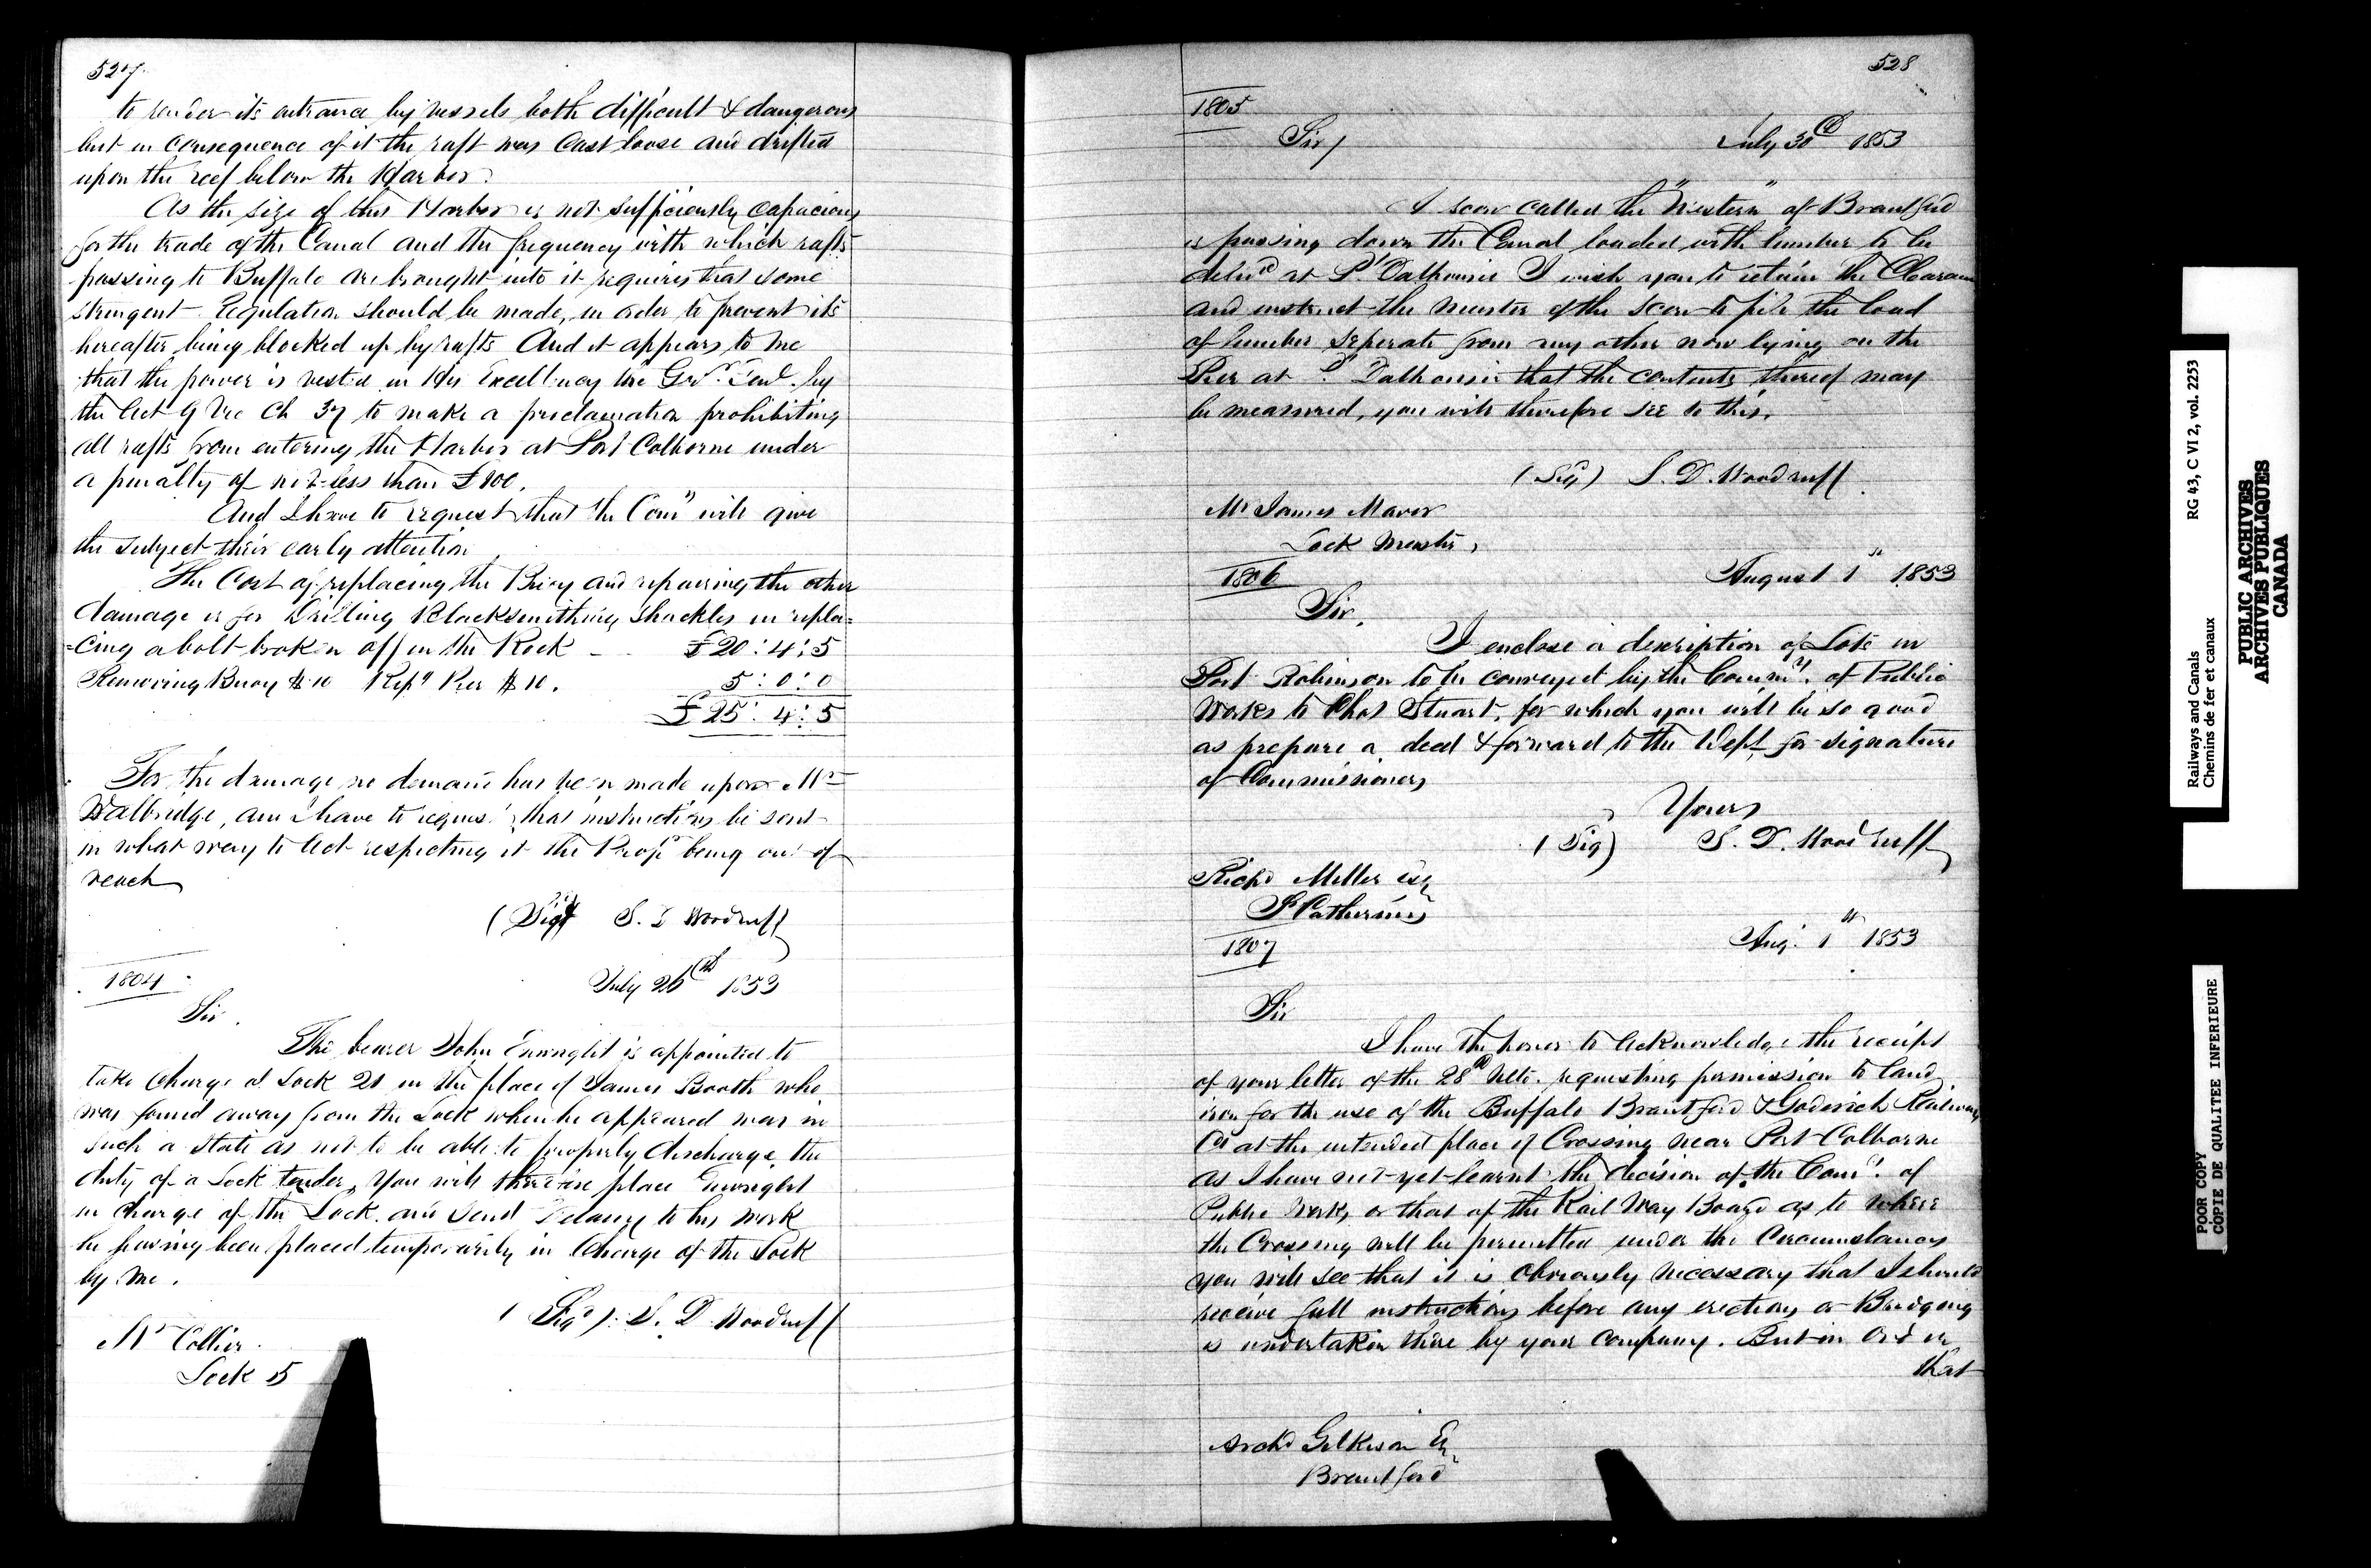 527
to render its entrance by vessels both difficult & dangerous
but in consequence of it the raft was Cast loose and drifted
upon the reef below the Harbor.
As the size of this Harbor is not sufficiently Capacious
for the trade of the Canal and the frequency with which rafts
passing to Buffalo are brought into it requires that some
stringent Regulation should be made, in order to prevent its
hereafter being blocked up by rafts And it appears to me
that the power is vested in His Excellency the Govr. Genl. by
the Act 9 Vic Ch 37 to make a proclamation prohibiting
all rafts from entering the Harbor at Port Colborne under
a penalty of not less than £100.
And I have to request that the Comrs will give
the subject their early attention
The Cost of replacing the Buoy and repairing the other
damage is for Drilling Blacksmithing Shackles in repla=
=cing a bolt broken off in the Rock £20:4:5
Removing Buoy $10 Repg Pier $10. 5:0:0
£25:4:5
For the damage no demand has been made upon Mr
Walbridge, and I have to request that instructions be sent
in what way to Act respecting it the Propr being out of
reach
(Sigd S. D Woodruff
1804
July 26th 1853
Sir.
The bearer John Enwright is appointed to
take Charge of Lock 21 in the place of James Booth who
was found away from the Lock when he appeared was in
such a state as not to be able to properly discharge the
duty of a Lock tender, You will therefore place Enwright
in Charge of the Lock and Send Delaney to his work
he having been placed temporarily in Charge of the Lock
by me.
(Sigd) S. D Woodruff
Mr Collier
Lock 15
528
1805
Sir/ July 30th 1853
A scow called the "Western" of Brantford
is passing down the Canal loaded with lumber to be
delivd at Pt Dalhousie I wish you to retain the Clearance
and instruct the Master of the Scow to pile the load
of lumber seperate from any other now lying on the
Pier at Pt Dalhousie that the contents thereof may
be measured, you will therefore see to this.
(Sigd) S. D. Woodruff
Mr James Maver
Lock Master,
1806 August 1st 1853
Sir,
I enclose a description of Lots in
Port Robinson to be conveyed by the Commrs. of Public
Works to Chas Stuart, for which you will be so good
as prepare a deed & forward to the Dept for signature
of Commissioners
Yours
(Sig) S. D. Woodruff
Richd Miller Esq
St Catherines
1807 Aug. 1st 1853
Sir
I have the honor to Acknowledge the receipt
of your letter of the 28th Ulto. requesting permission to land
iron for the use of the Buffalo Brantford & Goderich Railway
Co at the intended place of Crossing near Port Colborne
as I have not yet learnt the decision of the Comrs. of
Public Works or that of the Rail Way Board as to where
the Crossing will be permitted under the Circumstances
you will see that it is obviously necessary that I should
receive full instructions before any erections or Bridging
is undertaken there by your Company. But in Order
that
Archd Gilkison Esq
Brantford
RG 43, C VI 2, vol. 2253
Railways and Canals
Chemins de fer et canaux
PUBLIC ARCHIVES
ARCHIVES PUBLIQUES
CANADA
POOR COPY
COPIE DE QUALITEE INFERIEURE